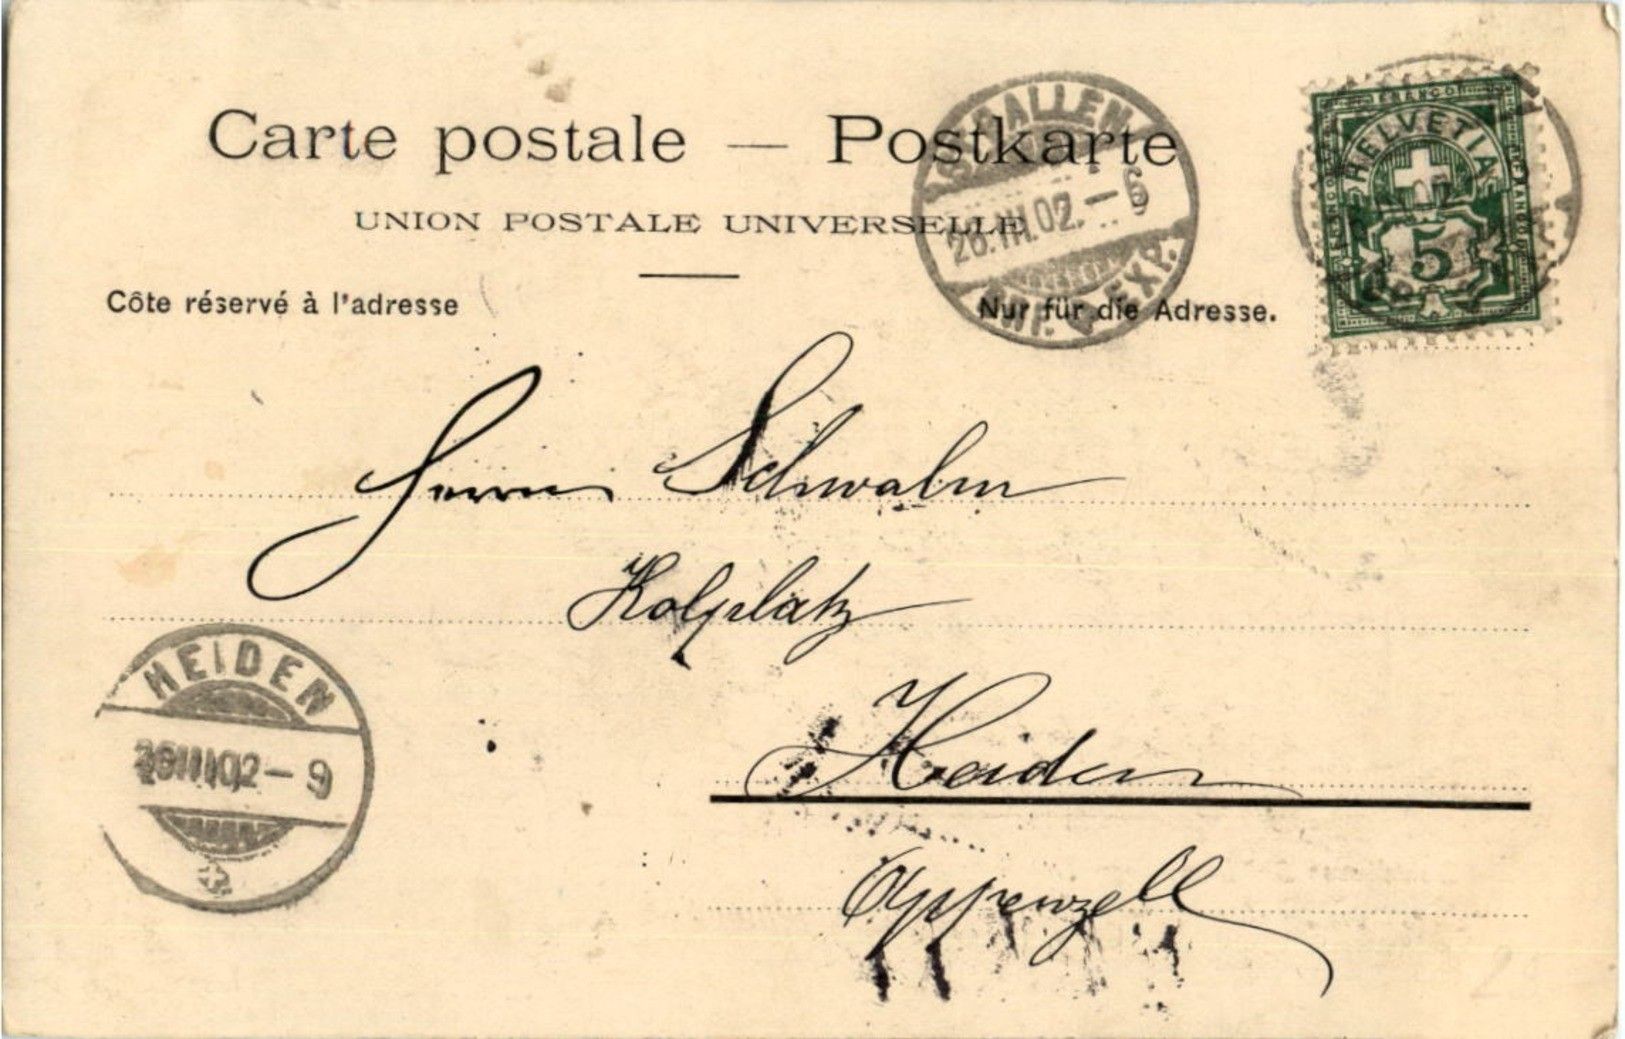 Carte postale — Postkarte
UNION POSTALE UNIVERSELLE
Côte réservé à l'adresse
Nur für die Adresse.
ST. GALLEN
26.III.02.–6
BRF. EXP.
FRANCO
HELVETIA
5
Herrn Schwalm
Kolplatz
Heiden
Appenzell
HEIDEN
26III02–9